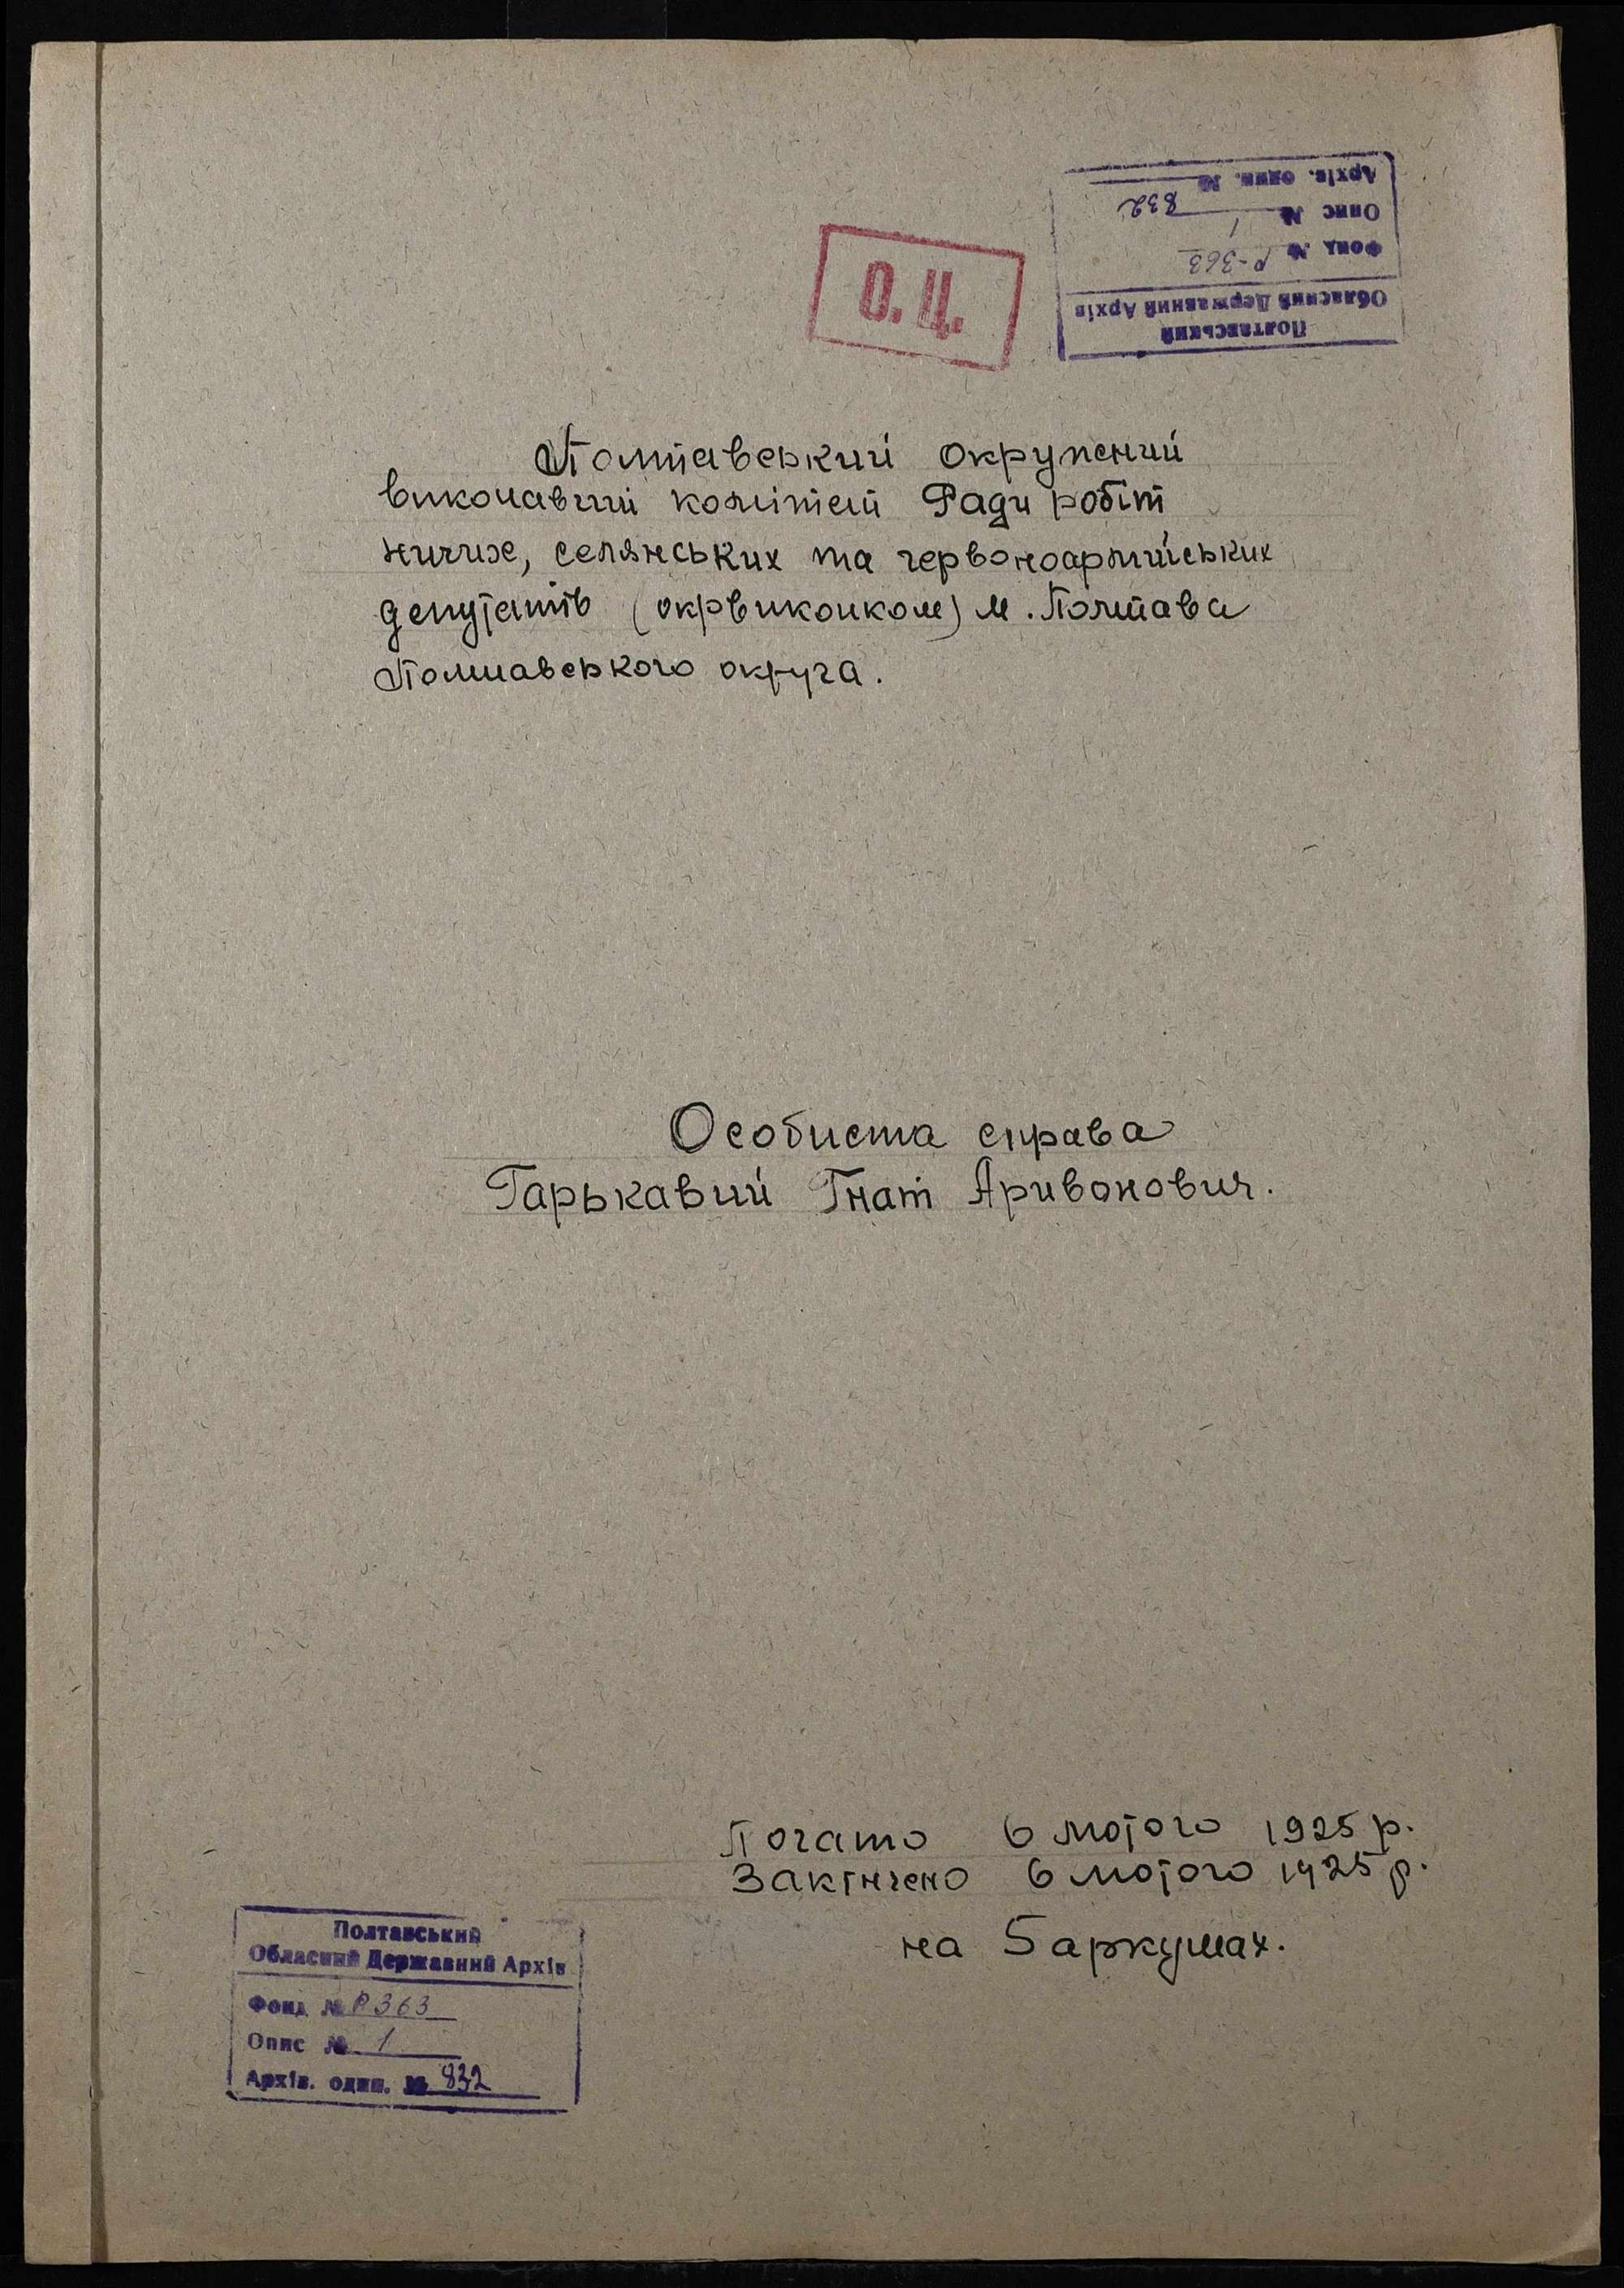 Полтавський
Обласний Державний Архів
Фонд № Р-363
Опис № 1
Архів. один. № 832
О. Ц.
Полтавський окружний
виконавчий комітет Ради робіт
ничих, селянських та червоноармійських
депутатів (окрвиконком) м. Полтава
Полтавського округа.
Особиста справа
Гарькавий Гнат Аривонович.
Почато 6 лютого 1925 р.
Закінчено 6 лютого 1925 р.
на 5 аркушах.
Полтавський
Обласний Державний Архів
Фонд № Р363
Опис № 1
Архів. один. № 832